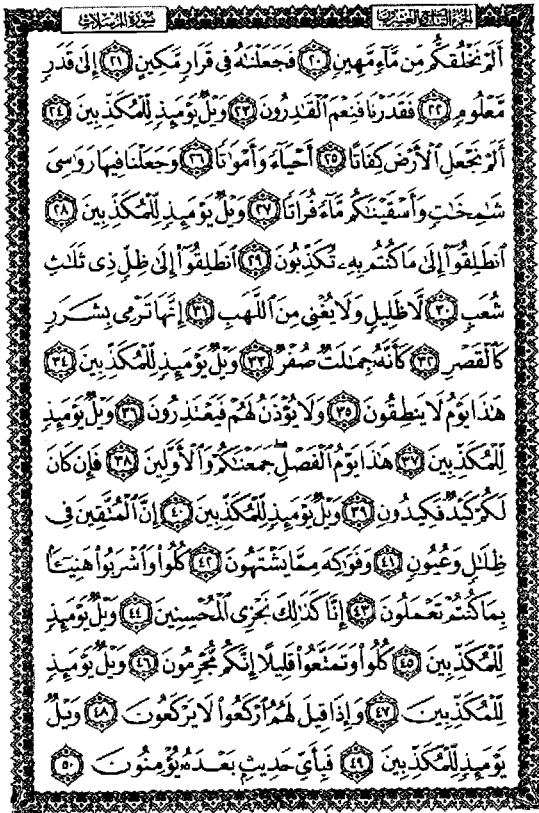 سورة المرسلات الجزء التاسع والعشرون
أَلَمْ نَخْلُقكُّم مِّن مَّآءٍ مَّهِينٍ ٢٠ فَجَعَلْنَٰهُ فِى قَرَارٍ مَّكِينٍ ٢١ إِلَىٰ قَدَرٍ
مَّعْلُومٍ ٢٢ فَقَدَرْنَا فَنِعْمَ ٱلْقَٰدِرُونَ ٢٣ وَيْلٌ يَوْمَئِذٍ لِّلْمُكَذِّبِينَ ٢٤
أَلَمْ نَجْعَلِ ٱلْأَرْضَ كِفَاتًا ٢٥ أَحْيَآءً وَأَمْوَٰتًا ٢٦ وَجَعَلْنَا فِيهَا رَوَٰسِىَ
شَٰمِخَٰتٍ وَأَسْقَيْنَٰكُم مَّآءً فُرَاتًا ٢٧ وَيْلٌ يَوْمَئِذٍ لِّلْمُكَذِّبِينَ ٢٨
ٱنطَلِقُوٓا۟ إِلَىٰ مَا كُنتُم بِهِۦ تُكَذِّبُونَ ٢٩ ٱنطَلِقُوٓا۟ إِلَىٰ ظِلٍّ ذِى ثَلَٰثِ
شُعَبٍ ٣٠ لَّا ظَلِيلٍ وَلَا يُغْنِى مِنَ ٱللَّهَبِ ٣١ إِنَّهَا تَرْمِى بِشَرَرٍ
كَٱلْقَصْرِ ٣٢ كَأَنَّهُۥ جِمَٰلَتٌ صُفْرٌ ٣٣ وَيْلٌ يَوْمَئِذٍ لِّلْمُكَذِّبِينَ ٣٤
هَٰذَا يَوْمُ لَا يَنطِقُونَ ٣٥ وَلَا يُؤْذَنُ لَهُمْ فَيَعْتَذِرُونَ ٣٦ وَيْلٌ يَوْمَئِذٍ
لِّلْمُكَذِّبِينَ ٣٧ هَٰذَا يَوْمُ ٱلْفَصْلِ جَمَعْنَٰكُمْ وَٱلْأَوَّلِينَ ٣٨ فَإِن كَانَ
لَكُمْ كَيْدٌ فَكِيدُونِ ٣٩ وَيْلٌ يَوْمَئِذٍ لِّلْمُكَذِّبِينَ ٤٠ إِنَّ ٱلْمُتَّقِينَ فِى
ظِلَٰلٍ وَعُيُونٍ ٤١ وَفَوَٰكِهَ مِمَّا يَشْتَهُونَ ٤٢ كُلُوا۟ وَٱشْرَبُوا۟ هَنِيٓـًٔۢا
بِمَا كُنتُمْ تَعْمَلُونَ ٤٣ إِنَّا كَذَٰلِكَ نَجْزِى ٱلْمُحْسِنِينَ ٤٤ وَيْلٌ يَوْمَئِذٍ
لِّلْمُكَذِّبِينَ ٤٥ كُلُوا۟ وَتَمَتَّعُوا۟ قَلِيلًا إِنَّكُم مُّجْرِمُونَ ٤٦ وَيْلٌ يَوْمَئِذٍ
لِّلْمُكَذِّبِينَ ٤٧ وَإِذَا قِيلَ لَهُمُ ٱرْكَعُوا۟ لَا يَرْكَعُونَ ٤٨ وَيْلٌ
يَوْمَئِذٍ لِّلْمُكَذِّبِينَ ٤٩ فَبِأَىِّ حَدِيثٍۭ بَعْدَهُۥ يُؤْمِنُونَ ٥٠